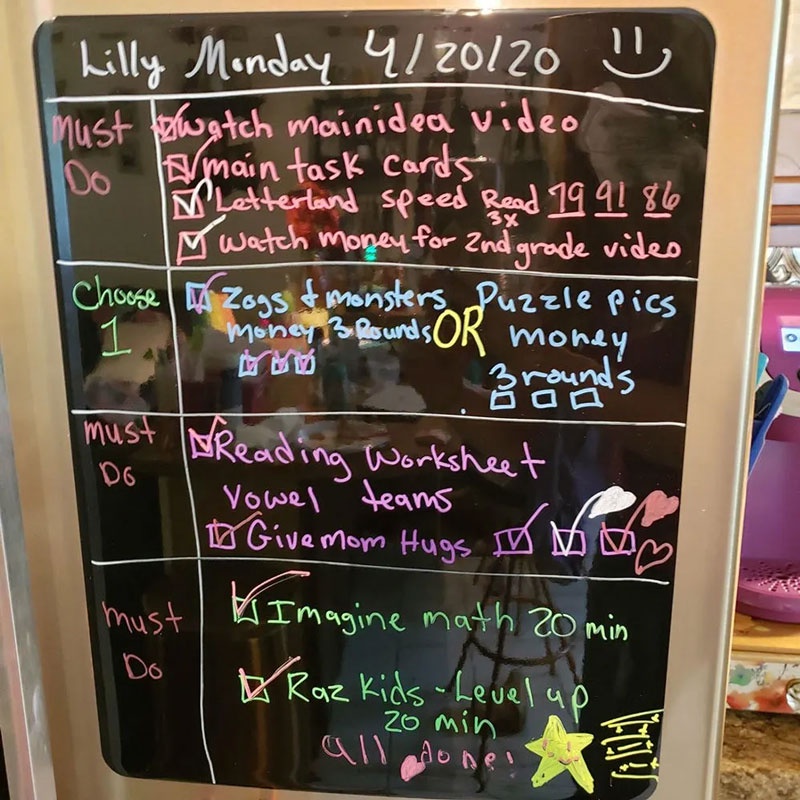 Lilly Monday 4/20/20
Must Do
Watch mainidea video
main task cards
Letterland Speed Read 79 91 86
3x
Watch money for 2nd grade video
Choose 1
Zogs & monsters
money 3 Rounds
OR
Puzzle pics
money
3 rounds
must Do
Reading Worksheet
Vowel teams
Give mom Hugs
must Do
Imagine math 20 min
Raz Kids - Level up
20 min
all done!